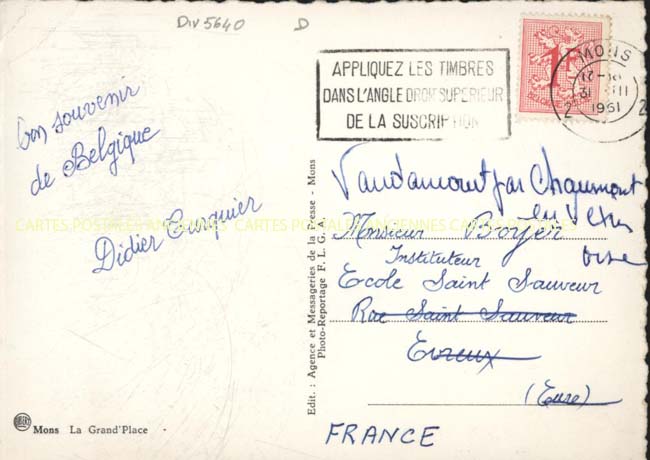 Div 5640 D
APPLIQUEZ LES TIMBRES
DANS L'ANGLE DROIT SUPERIEUR
DE LA SUSCRIPTION
MONS
31
1961
2 2
Bon souvenir
de Belgique
Didier Turquier
CARTES POSTALES ANCIENNES CARTES POSTALES ANCIENNES CARTES POSTALES ANCIENNES
Edit. : Agence et Messageries de la Presse - Mons
Photo-Reportage F. L. G. A.
Vaudancourt par Chaumont
en Vexin
Oise
Monsieur Boyer
Instituteur
Ecole Saint Sauveur
Rue Saint Sauveur
Evreux
(Eure)
FRANCE
Mons La Grand'Place